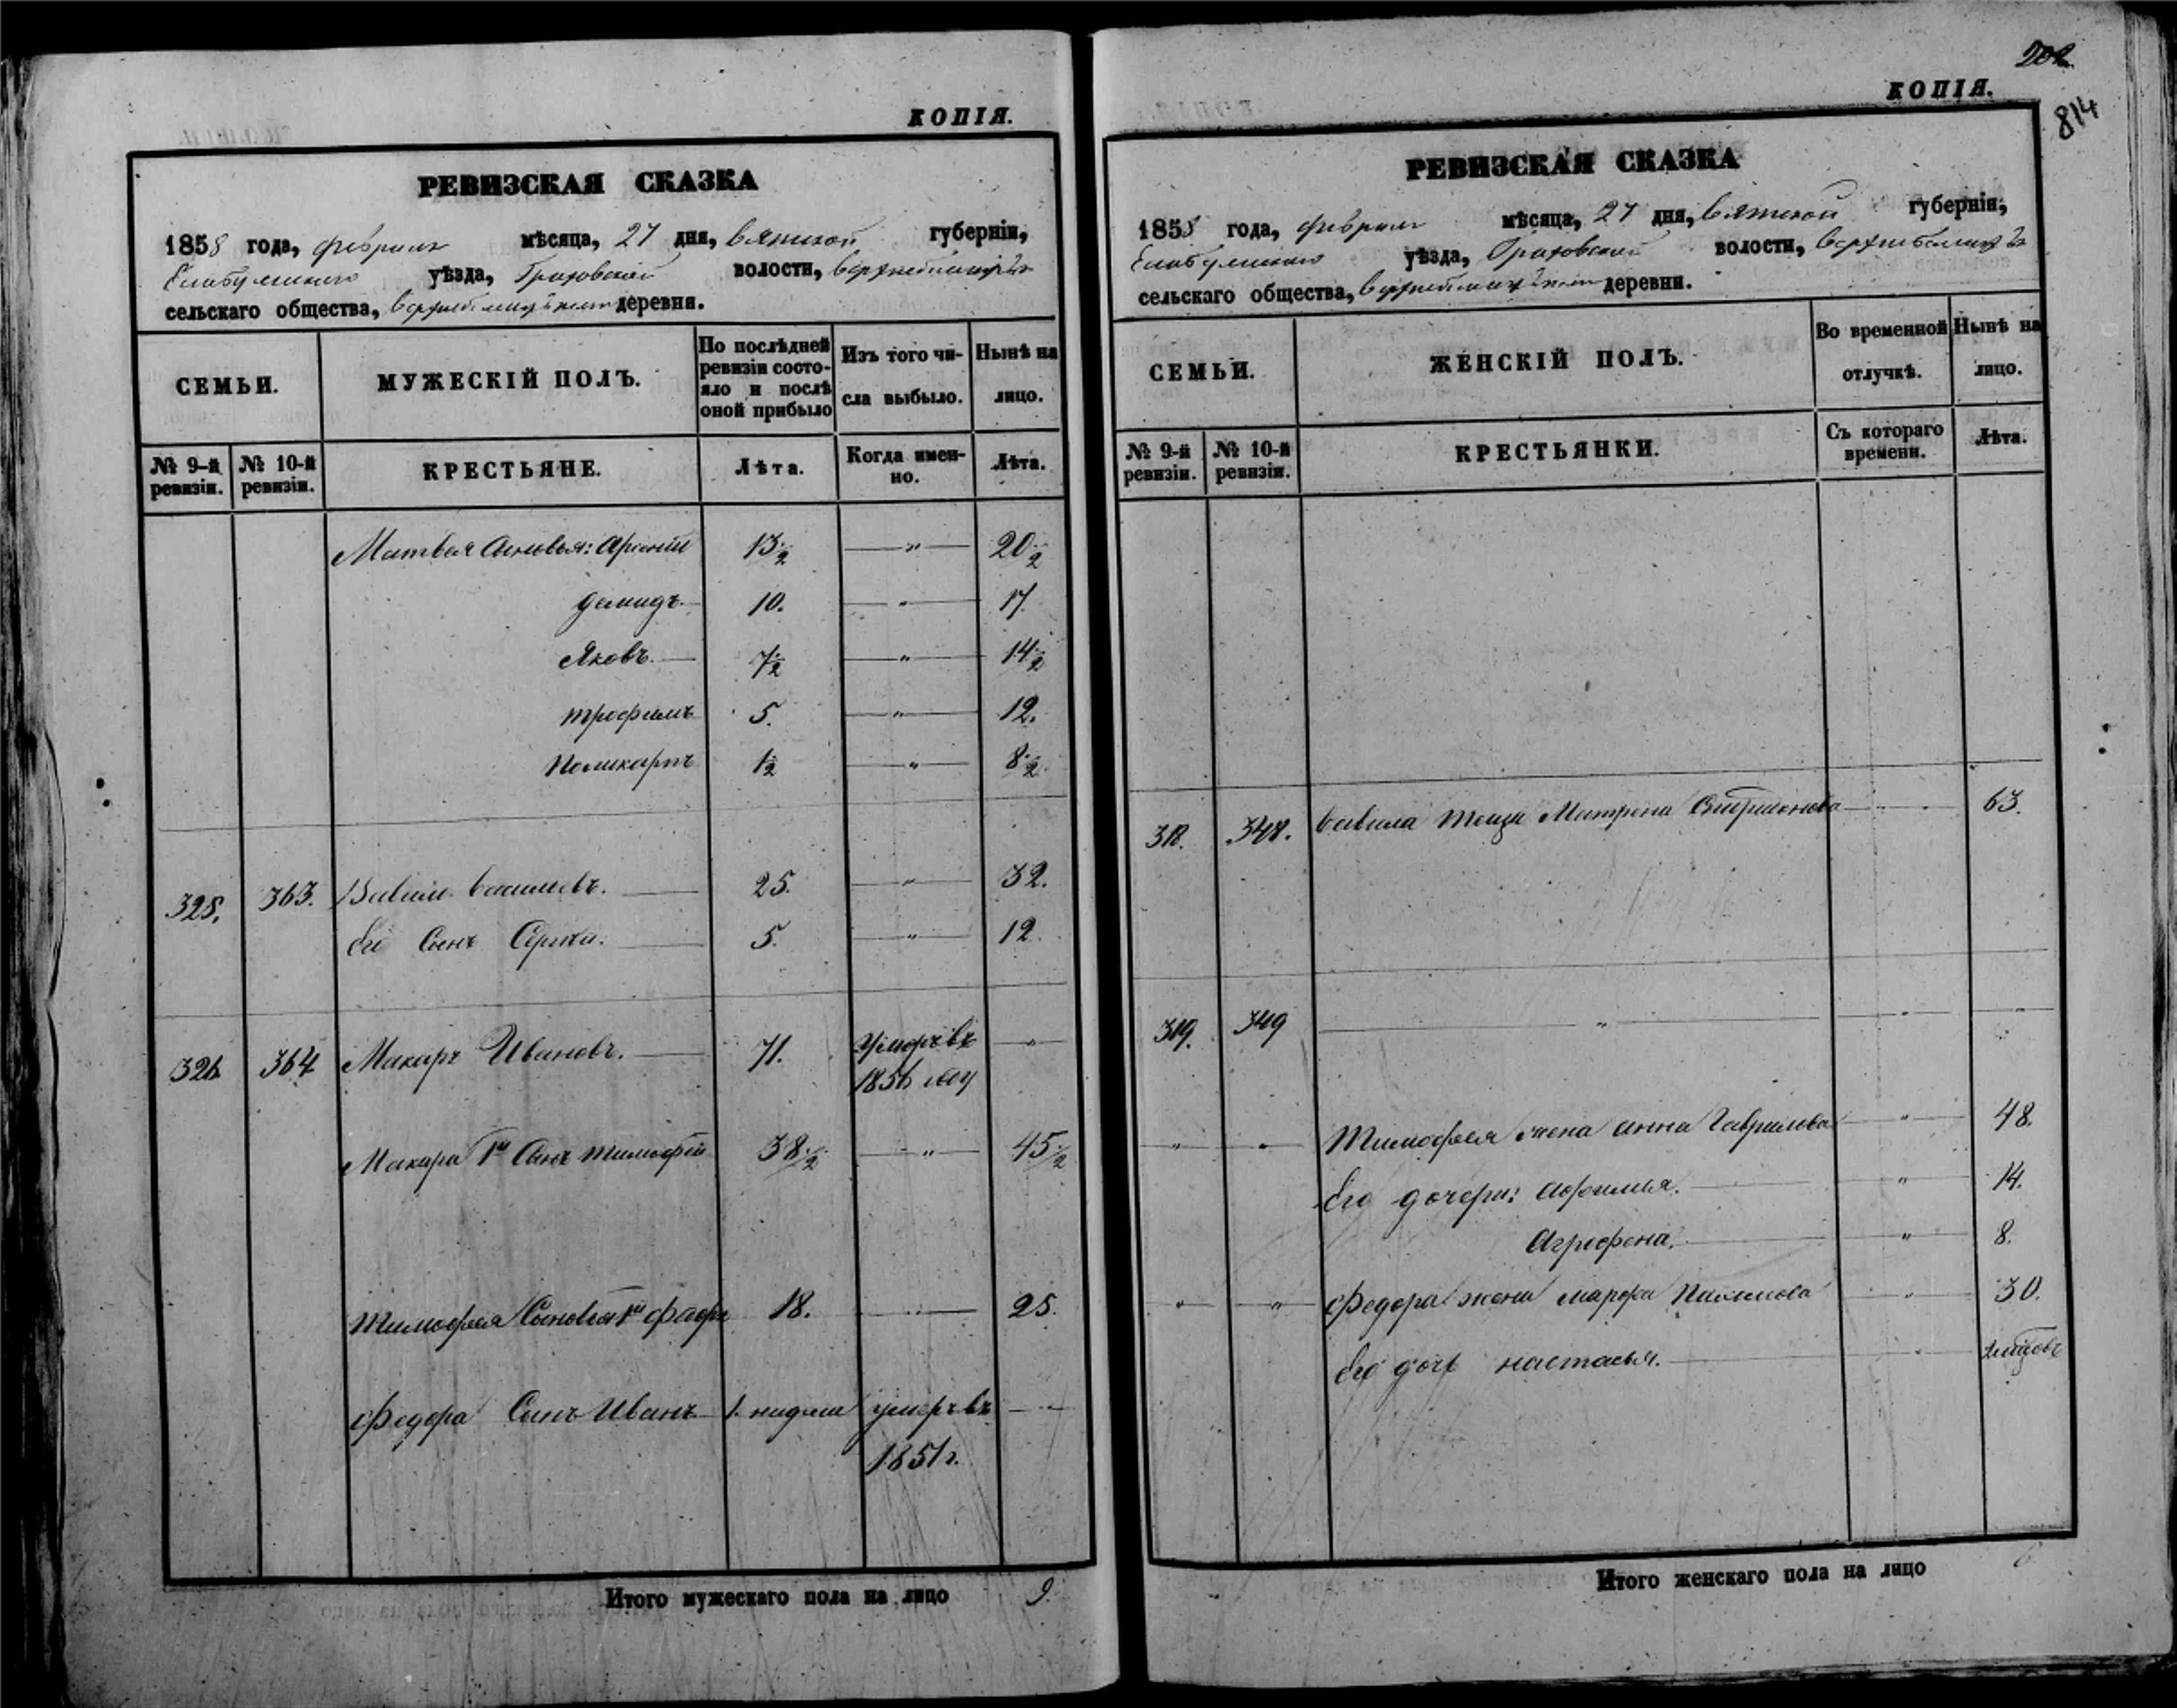 КОПІЯ.
РЕВИЗСКАЯ СКАЗКА
1858 года, февраля мѣсяца, 27 дня, Вятской губерніи,
Елабужскаго уѣзда, Граховской волости,
сельскаго общества, деревня.
СЕМЬИ. МУЖЕСКІЙ ПОЛЪ. По послѣдней ревизіи состояло и послѣ оной прибыло Изъ того числа выбыло. Нынѣ на лицо.
№ 9-й ревизіи. № 10-й ревизіи. КРЕСТЬЯНЕ. Лѣта. Когда именно. Лѣта.
Матвея Сыновья: Арсентій 13 1/2 — " — 20 1/2
Демидъ. 10. — " — 17.
Яковъ. 7 1/2 — " — 14 1/2
Трофимъ 5. — " — 12.
Поликарпъ 1 1/2 — " — 8 1/2
325. 363. Вавило Васильевъ. 25. — " — 32.
Его Сынъ Сергей. 5. — " — 12.
326. 364 Макаръ Ивановъ. 71. Умеръ въ — " —
1856 году
Макара 1й Сынъ Тимофей 38 1/2 — " — 45 1/2
Тимофея Сыновья 1й Федоръ 18. — " — 25.
Федора Сынъ Иванъ 1. неделя умеръ въ — " —
1851 г.
Итого мужескаго пола на лицо 9.
202
КОПІЯ.
814
РЕВИЗСКАЯ СКАЗКА
1858 года, февраля мѣсяца, 27 дня, Вятской губерніи,
Елабужскаго уѣзда, Граховской волости,
сельскаго общества, деревни.
СЕМЬИ. ЖЕНСКІЙ ПОЛЪ. Во временной отлучкѣ. Нынѣ на лицо.
№ 9-й ревизіи. № 10-й ревизіи. КРЕСТЬЯНКИ. Съ котораго времени. Лѣта.
318. 348. Вавила теща Матрена — " — 63.
319. 349 — " — — " — "
" " Тимофея жена Анна Гаврилова — " — 48.
Его дочери: Афимья. — " — 14.
Агрофена. — " — 8.
" " Федора жена Марфа — " — 30.
Его дочь Настасья. — " —
Итого женскаго пола на лицо